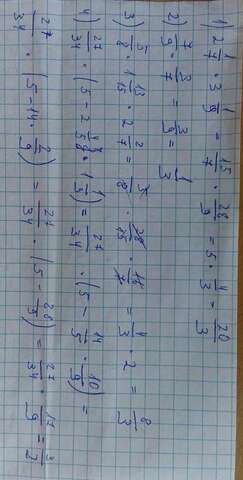 1) 2 1/7 · 3 1/9 = 15/7 · 28/9 = 5 · 4/3 = 20/3
2) 7/9 · 3/7 = 3/9 = 1/3
3) 5/8 · 1 13/15 · 2 2/7 = 5/8 · 28/15 · 16/7 = 4/3 · 2 = 8/3
4) 27/34 · (5 - 2 4/5 · 1 1/9) = 27/34 · (5 - 14/5 · 10/9) =
27/34 · (5 - 14 · 2/9) = 27/34 · (5 - 28/9) = 27/34 · 17/9 = 3/2